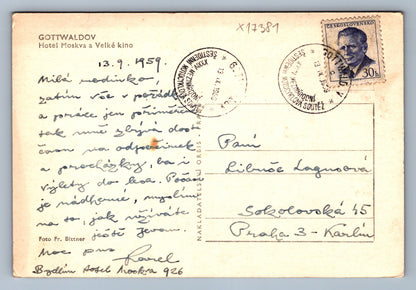 X17381
GOTTWALDOV
Hotel Moskva a Velké kino
13. 9. 1959.
Milá rodinko,
zatím vše v pořádku
a práce jen přiměřeně
tak mně zbývá dost
času na odpočinek
a procházky, ba i
výlety do lesa. Počasí
je nádherné, myslím
na to, jak užíváte
ještě
Moc pus
Karel
Bydlím Hotel Moskva 926
Foto Fr. Bittner
NAKLADATELSTVÍ ORBIS - PRAHA
ČESKOSLOVENSKO
30h
GOTTWALDOV
Paní
Libuše
Sokolovská 45
Praha 3 - Karlín